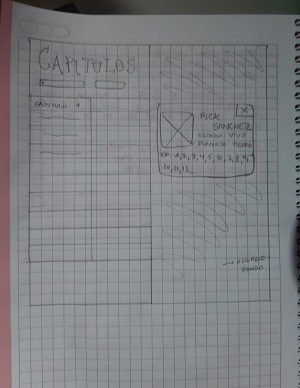 CAPITULOS
CAPITULO 1
X
RICK
SANCHEZ
ESTADO: VIVO
PLANETA TIERRA
EP. 1,2,3,4,5,6,7,8,9,
10,11,12,
→ OSCURECE
FONDO